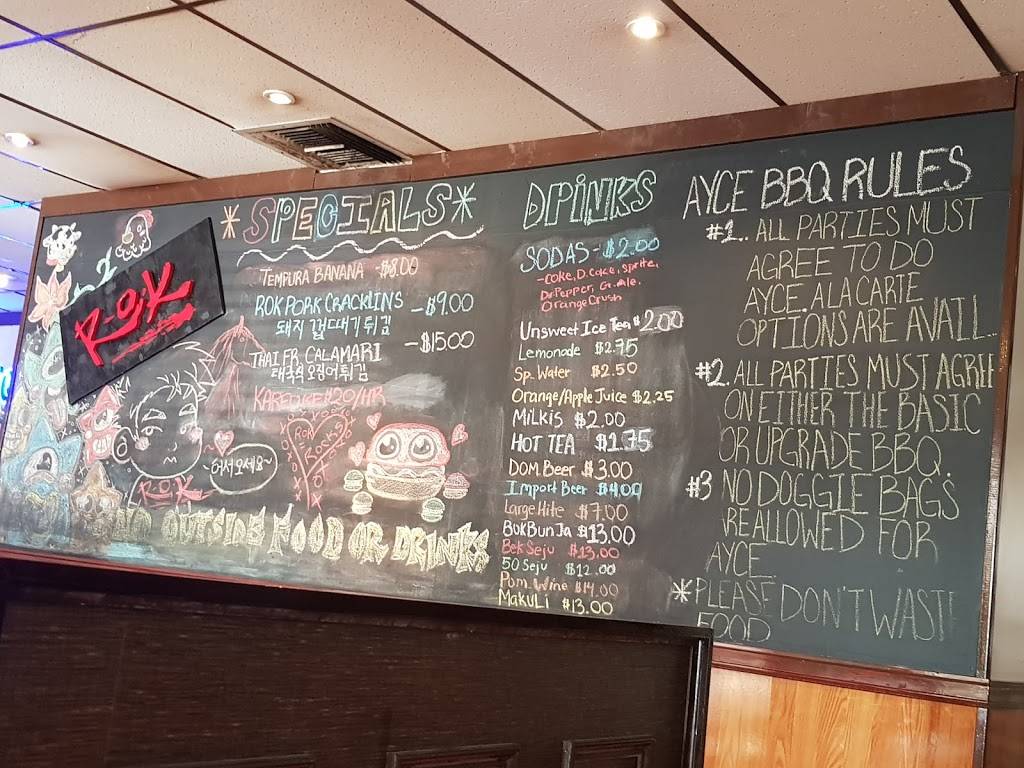 R.O.K
SPECIALS
TEMPURA BANANA - $8.00
ROK PORK CRACKLINS - $9.00
돼지 껍대기 튀김
THAI FR. CALAMARI - $15.00
태국식 오징어 튀김
$20/HR
ROK
~어서오세요~
R.O.K
NO OUTSIDE FOOD OR DRINKS
DRINKS
SODAS - $2.00
- Coke, D. Coke, Sprite,
Dr. Pepper, G. Ale,
Orange Crush
Unsweet Ice Tea $2.00
Lemonade $2.75
Sp. Water $2.50
Orange/Apple Juice $2.25
Milkis $2.00
HOT TEA $1.75
DOM Beer $3.00
Import Beer $4.00
Large Hite $7.00
BokBunJa $13.00
Bek Seju $13.00
50 Seju $12.00
Pom. Wine $14.00
Makuli $13.00
AYCE BBQ RULES
#1.. ALL PARTIES MUST
AGREE TO DO
AYCE. ALA CARTE
OPTIONS ARE AVAIL..
#2. ALL PARTIES MUST AGREE
ON EITHER THE BASIC
OR UPGRADE BBQ.
#3 NO DOGGIE BAGS
ARE ALLOWED FOR
AYCE
*PLEASE DON'T WASTE
FOOD